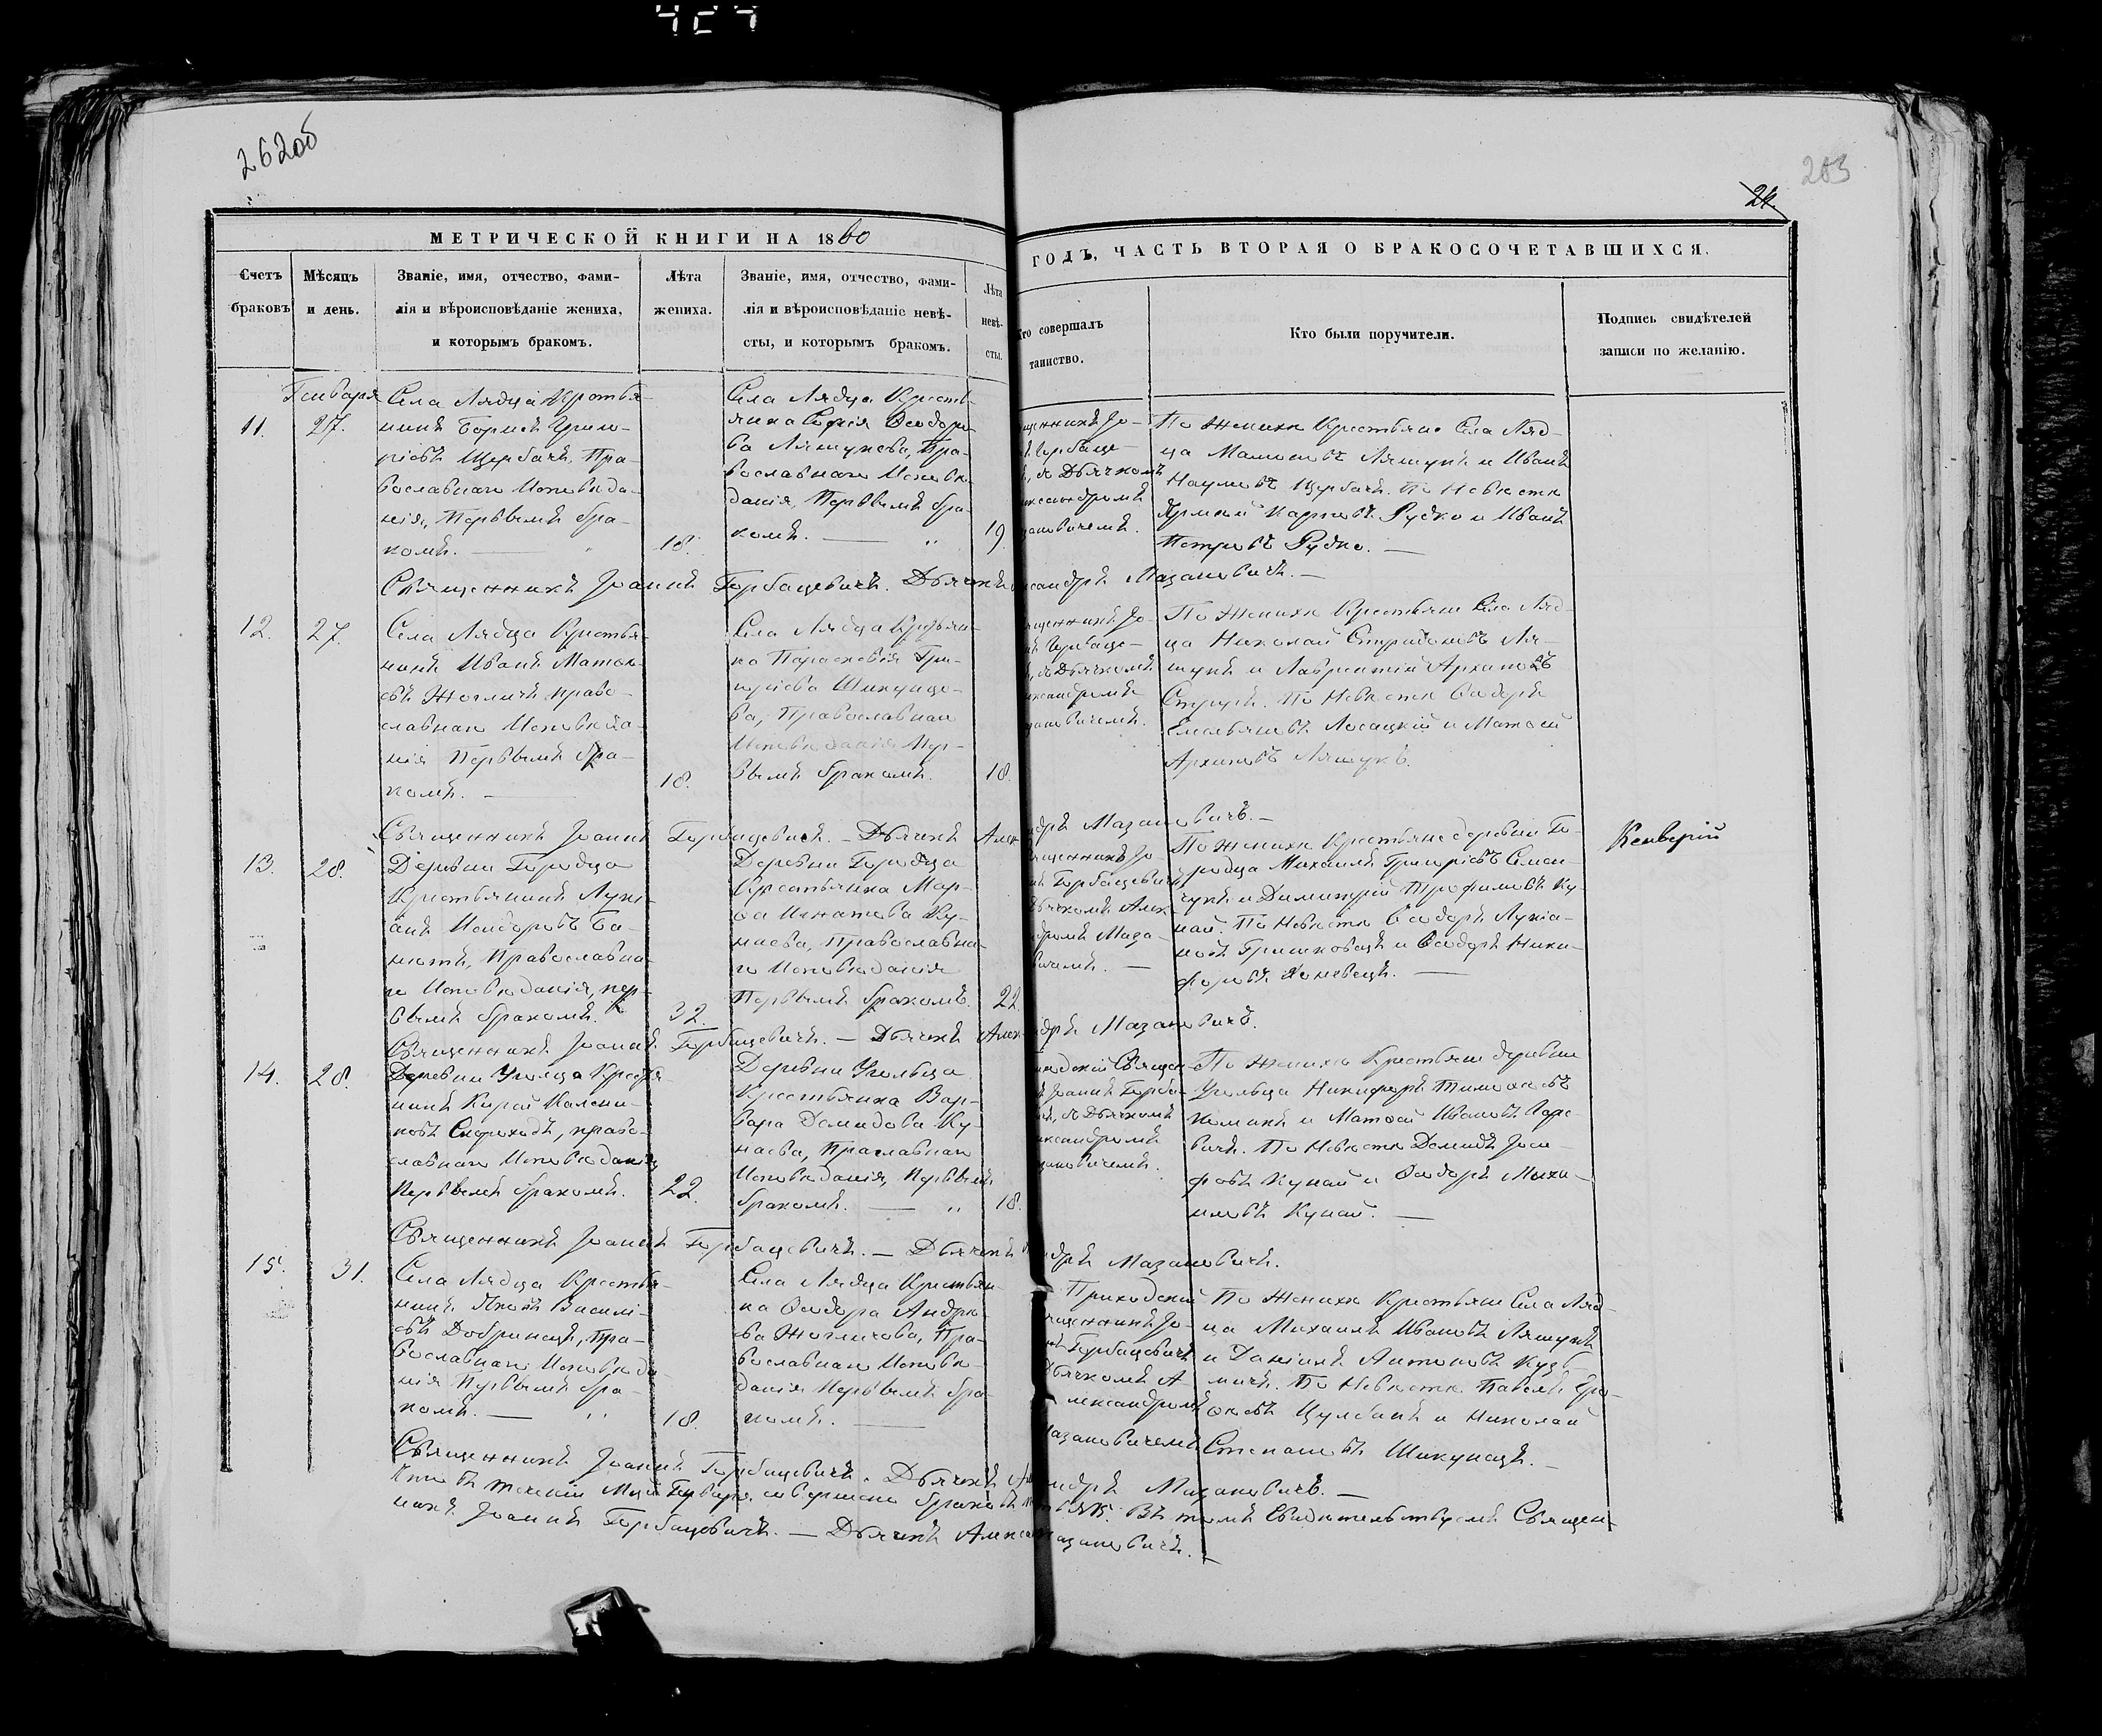 262об
203
24.
МЕТРИЧЕСКОЙ КНИГИ НА 1860
ГОДЪ, ЧАСТЬ ВТОРАЯ О БРАКОСОЧЕТАВШИХСЯ.
Счетъ браковъ
Мѣсяцъ и день.
Званіе, имя, отчество, фами-
лія и вѣроисповѣданіе жениха,
и которымъ бракомъ.
Лѣта жениха.
Званіе, имя, отчество, фами-
лія и вѣроисповѣданіе невѣ-
сты, и которымъ бракомъ.
Лѣта невѣ-
сты.
Кто совершалъ
таинство.
Кто были поручители.
Подпись свидѣтелей
записи по желанію.
Генваря
11.
27.
Села Лядца Крестья-
нинъ Борисъ Григо-
ріевъ Щербачъ, Пра-
вославнаго Исповѣда-
нія, Первымъ бра-
комъ.
18.
Села Лядца Кресть-
янка Софія Ѳеодоро-
ва Ляшукова, Пра-
вославнаго Исповѣ-
данія, Первымъ бра-
комъ.
19.
щенникъ Іо-
ъ Горбаце-
, съ Дьячкомъ
ксандромъ
зановичемъ.
По Женихѣ Крестьяне Села Ляд-
ца Ляшукъ и Иванъ
Наумовъ Щербачъ. По Невѣстѣ
Карповъ Рудко и Иванъ
Петровъ Рудко.
Священникъ Іоаннъ Горбацевичъ. Дьячекъ Александръ Мазановичъ.
12.
27.
Села Лядца Крестья-
нинъ Иванъ Матѳѣ-
евъ Жогличъ Право-
славнаго Исповѣда-
нія Первымъ бра-
комъ.
18.
Села Лядца Крестьян-
ка Параскевія Гри-
горіева Шикунцо-
ва, Православнаго
Исповѣданія Пер-
вымъ бракомъ.
18.
щенникъ Іо-
ъ Горбаце-
, съ Дьячкомъ
ксандромъ
зановичемъ.
По Женихѣ Крестьяне Села Ляд-
ца Николай Спиридоновъ Ля-
шукъ и Лаврентій Архиповъ
По Невѣстѣ Ѳеодоръ
Емельяновъ Лосацкій и Матѳей
Архиповъ Ляшукъ.
Священникъ Іоаннъ Горбацевичъ. — Дьячекъ Александръ Мазановичъ. —
13.
28.
Деревни Городца
Крестьянинъ Лукі-
анъ Исидоровъ Ба-
нютъ, Православна-
го Исповѣданія, пер-
вымъ бракомъ.
32.
Деревни Городца
Крестьянка Мар-
ѳа Игнатова Ку-
наева, Православна-
го Исповѣданія
Первымъ бракомъ.
22.
щенникъ Іо-
ъ Горбацевичъ
ьячкомъ Алек-
дромъ Маза-
вичемъ. —
По Женихѣ Крестьяне деревни Го-
родца Михаилъ Григоріевъ Семен-
чукъ и Димитрій Трофимовъ Ку-
най. По Невѣстѣ Ѳеодоръ Лукіа-
новъ Гришковецъ и Ѳеодоръ Ники-
форовъ
Ксаверій
Священникъ Іоаннъ Горбацевичъ. — Дьячекъ Александръ Мазановичъ.
14.
28.
Деревни Угольца Крестья-
нинъ Карпъ Калени-
ковъ Скороходъ, право-
славнаго Исповѣданія
Первымъ бракомъ.
22.
Деревни Угольца
Крестьянка Вар-
вара Демидова Ку-
наева, Праславнаго
Исповѣданія, Первымъ
бракомъ.
18.
ходскій Священ-
ъ Іоаннъ Горба-
, съ Дьячкомъ
ксандромъ
зановичемъ.
По Женихѣ Крестьяне деревни
Угольца Никифоръ Тимоѳеевъ
и Матѳей Ивановъ
По Невѣстѣ Демидъ Іоси-
фовъ Кунай и Ѳеодоръ Миха-
иловъ Кунай.
Священникъ Іоаннъ Горбацевичъ. — Дьячекъ Александръ Мазановичъ.
15.
31.
Села Лядца Крестья-
нинъ Яковъ Василі-
евъ Добринецъ, Пра-
вославнаго Исповѣда-
нія Первымъ бра-
комъ.
18.
Села Лядца Крестьян-
ка Ѳеодора Андрѣе-
ва Жогличова, Пра-
вославнаго Исповѣ-
данія Первымъ бра-
комъ.
Приходскій
щенникъ Іо-
ъ Горбацевичъ
Дьячкомъ А-
лександромъ
Мазановичемъ
По Женихѣ Крестьяне Села Ляд-
ца Михаилъ Ивановъ Ляшукъ
и Даніилъ Антоновъ Кузь-
мичъ. По Невѣстѣ Павелъ
Цулбанъ и Николай
Степановъ Шикунецъ. —
Священникъ Іоаннъ Горбацевичъ. Дьячекъ Александръ Мазановичъ. —
Что въ теченіи Мца Генваря, совершено браковъ 15. Въ томъ Свидѣтельствуемъ Священ-
никъ Іоаннъ Горбацевичъ. — Дьячекъ Александръ Мазановичъ. —